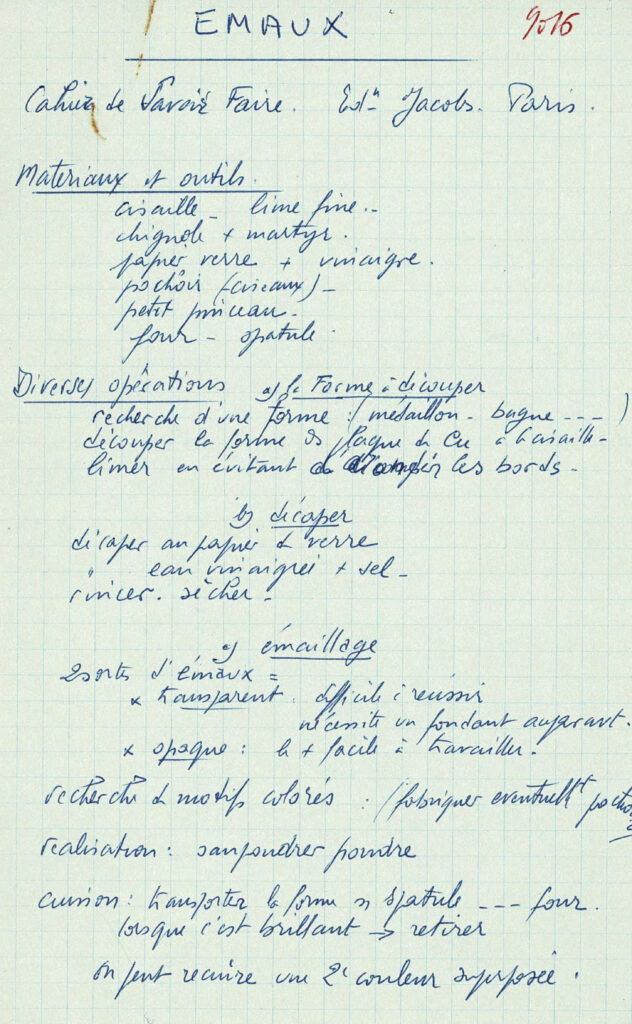 EMAUX
Cahier de Savoir Faire. Edn Jacobs. Paris.
Materiaux et outils.
cisaille - lime fine.-
chignole + martyr.
papier verre + vinaigre.
pochoir (ciseaux) -
petit pinceau -
four - spatule.
Diverses opérations a) la Forme à découper
recherche d'une forme : (médaillon - bague --- )
découper la forme ds plaque de Cu à la cisaille -
limer en évitant de les bords -
b) décaper
décaper au papier de verre
" eau vinaigrée + sel -
rincer. sécher -
c) émaillage
2 sortes d'émaux =
x transparent. difficile à réussir
nécessite un fondant auparavant.
x opaque : le + facile à travailler.
recherche de motifs colorés : (fabriquer eventuellt
realisation : saupoudrer poudre
cuisson : transporter la forme s/ spatule --- four.
lorsque c'est brillant → retirer
on peut recuire une 2e couleur superposée.